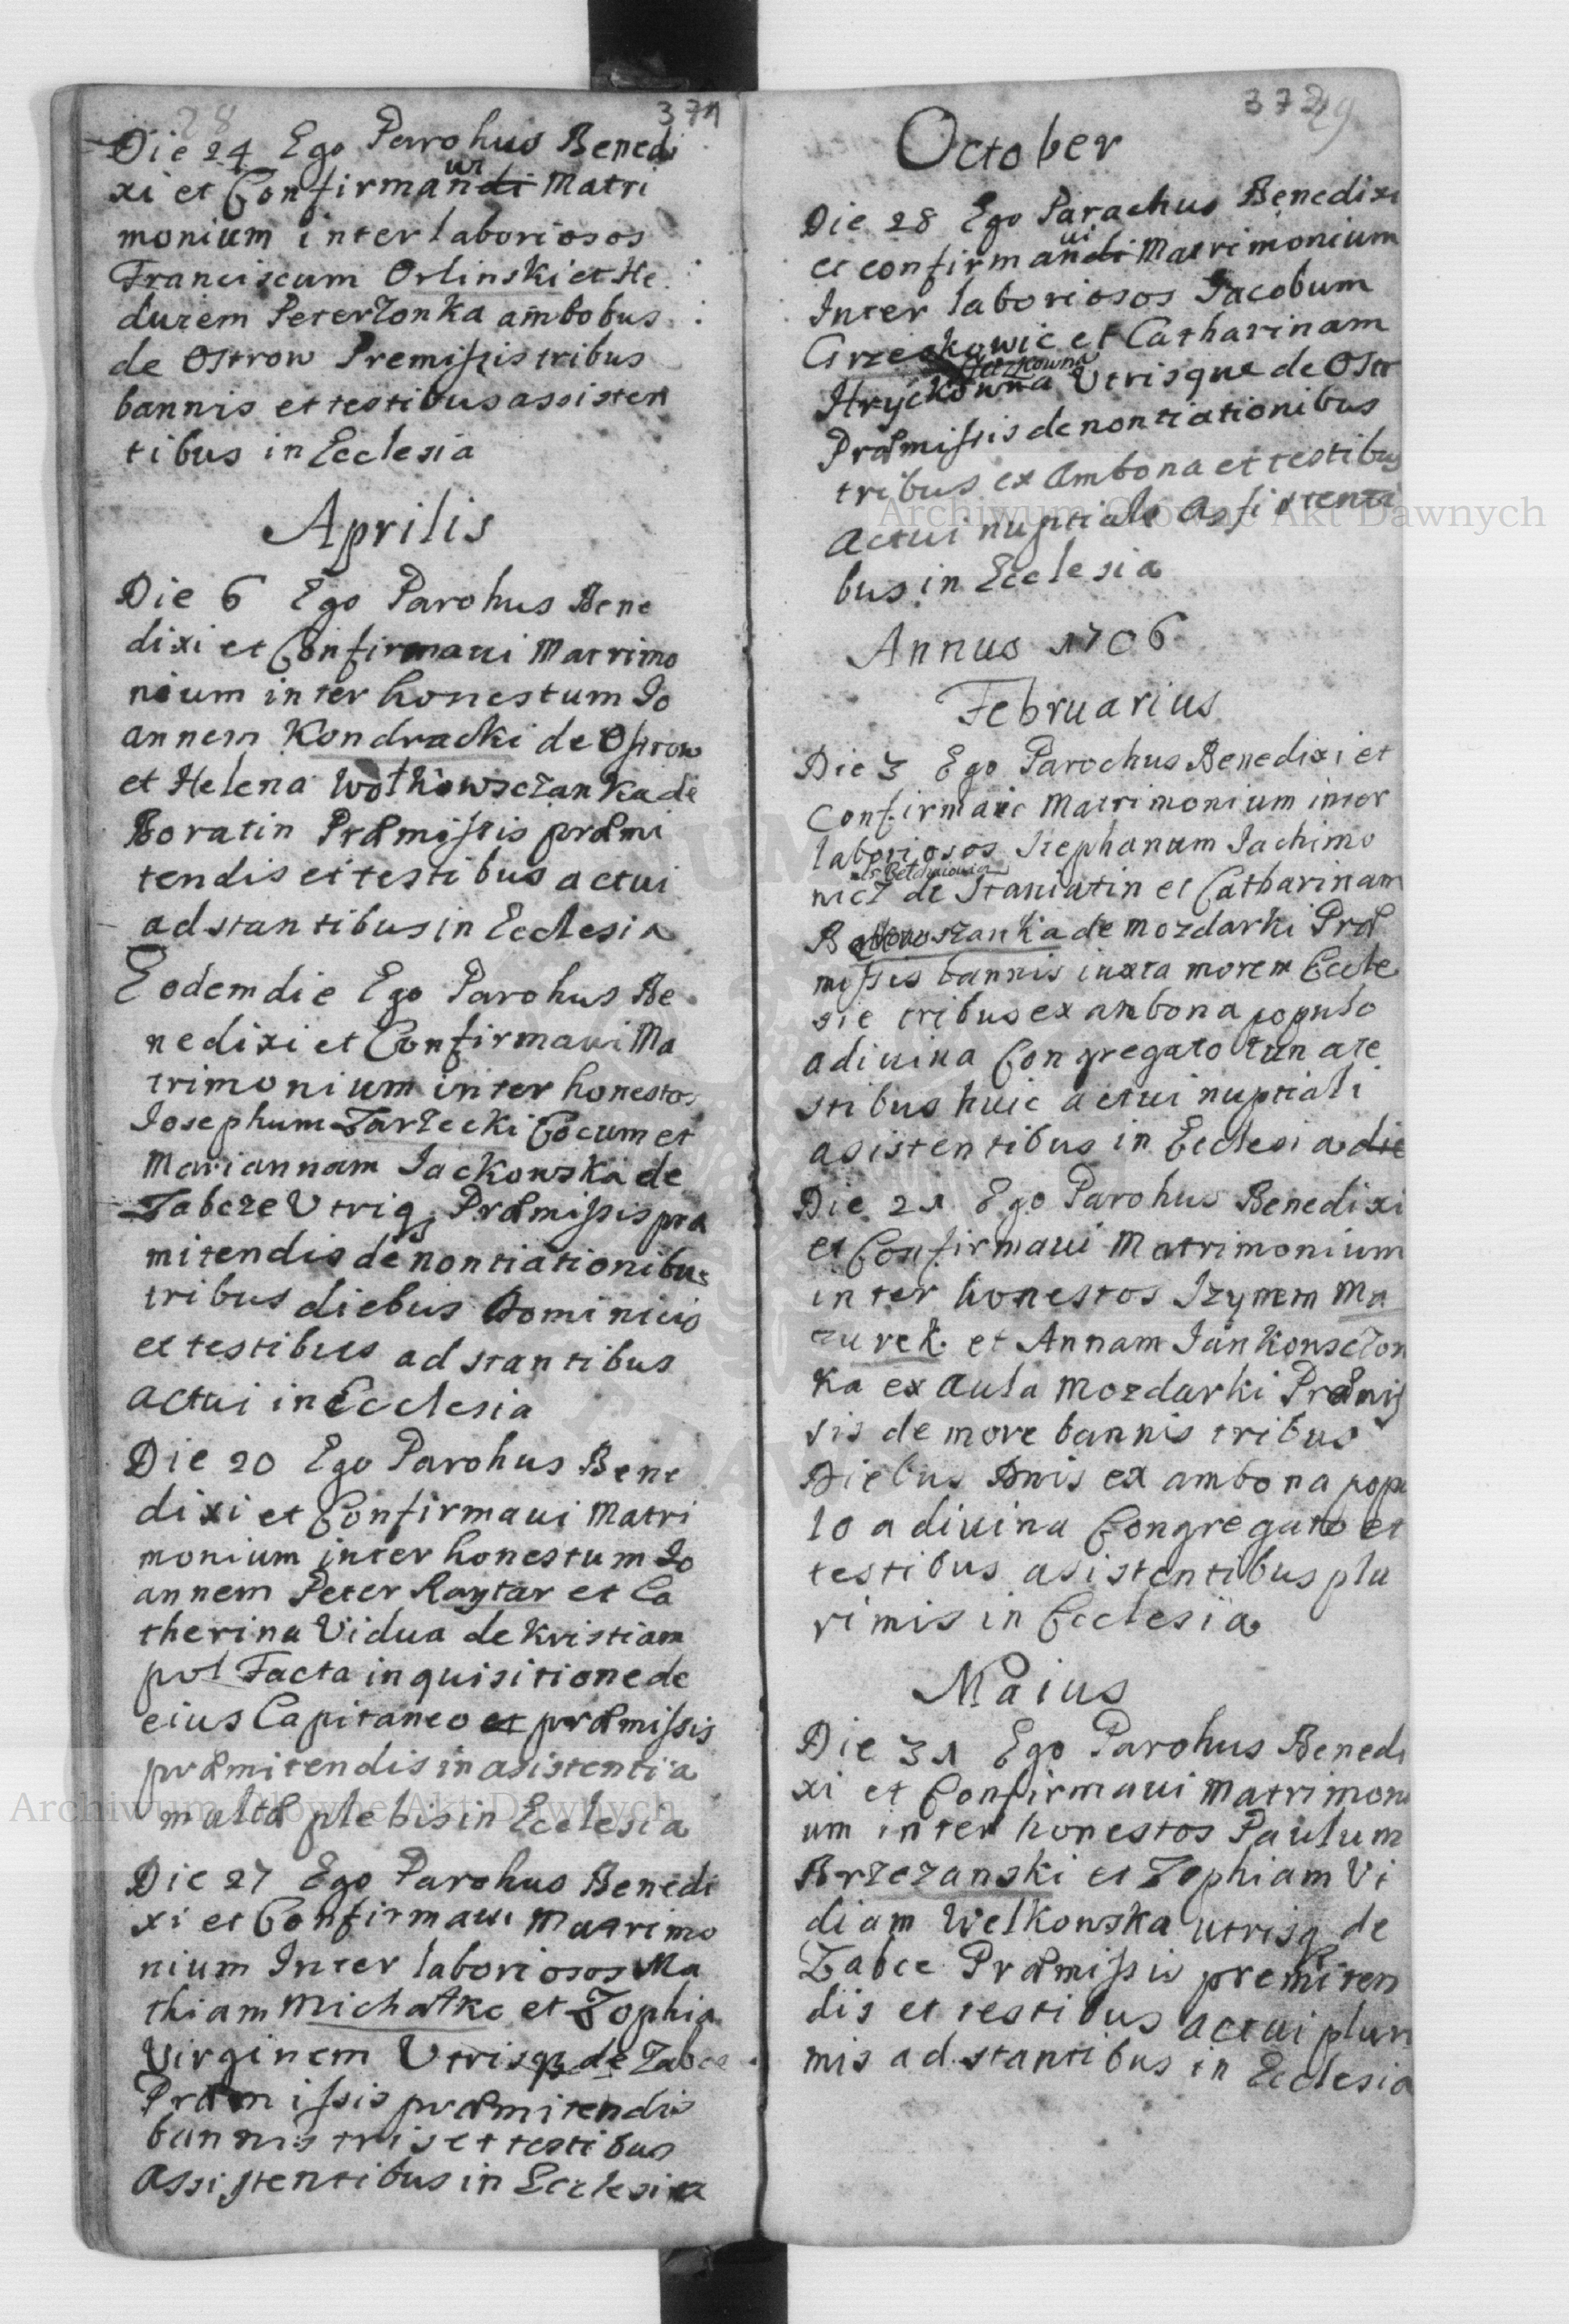 28
371
Die 24 Ego Parohus Benedi
xi et Confirmandi ui Matri
monium inter laboriosos
Franciscum Orlinski et He
durem Peterzonka ambobus
de Ostrow Premissis tribus
bannis et testibus assisten
tibus in Ecclesia
Aprilis
Die 6 Ego Parohus Bene
dixi et Confirmaui Matrimo
nium inter honestum Jo
annem Kondracki de Ostrow
et Helena Wołkowsczanka de
Boratin Præmissis præmi
tendis et testibus actui
adstantibus in Ecclesia
Eodem die Ego Parohus Be
nedixi et Confirmaui Ma
trimonium inter honestos
Josephum Zarzecki Cocum et
Mariannam Jackowska de
Zabcze Utriqs Præmissis præ
mitendis denontiationibus
tribus diebus Dominicis
et testibus ad stantibus
actui in Ecclesia
Die 20 Ego Parohus Bene
dixi et Confirmaui Matri
monium inter honestum Jo
annem Peter Raytar et Ca
therina Vidua de Kristiam
pol Facta inquisitione de
eius Capitaneo et præmissis
præmitendis in asistentia
multæ plebis in Ecclesia
Die 27 Ego Parohus Benedi
xi et Confirmaui Matrimo
nium Inter laboriosos Ma
thiam Michałko et Zophia
Virginem Utrisqs de Zabce
Præmissis præmitendis
bannis tris et testibus
Assistentibus in Ecclesia
372
29
October
Die 28 Ego Parachus Benedixi
et confirmandi ui Matrimonium
Inter laboriosos Jacobum
Grzeskowic et Catharinam
Hryckowna Utrisque de Ostr
Præmissis denontiationibus
tribus ex Ambona et testibus
Actui nuptiale Assistenti
bus in Ecclesia
Annus 1706
Februarius
Die 3 Ego Parochus Benedixi et
Confirmaui Matrimonium inter
laboriosos Stephanum Jachimo
wicz de Staniatin et Catharinam
de Mozdarki Præ
missis bannis iuxta morem Eccle
sie tribus ex ambona populo
adiuina Congregato tun ate
stibus huic actui nuptiali
asistentibus in Ecclesia die
Die 21 Ego Parohus Benedixi
et Confirmaui Matrimonium
inter honestos Szymem Ma
zurek et Annam Jankonsczon
ka ex Aula Mozdarki Præmis
sis de more bannis tribus
Diebus Dnis ex ambona popu
lo a diuina Congregato et
testibus asistentibus plu
rimis in Ecclesia
Maius
Die 31 Ego Parohus Benedi
xi et Confirmaui Matrimoni
um inter honestos Paulum
Brzezanski et Zophiam Vi
diam Welkowska utrisq de
Zabce Præmissis premiten
dis et testibus actui pluri
mis ad stantibus in Ecclesia
Archiwum Główne Akt Dawnych
Archiwum Główne Akt Dawnych